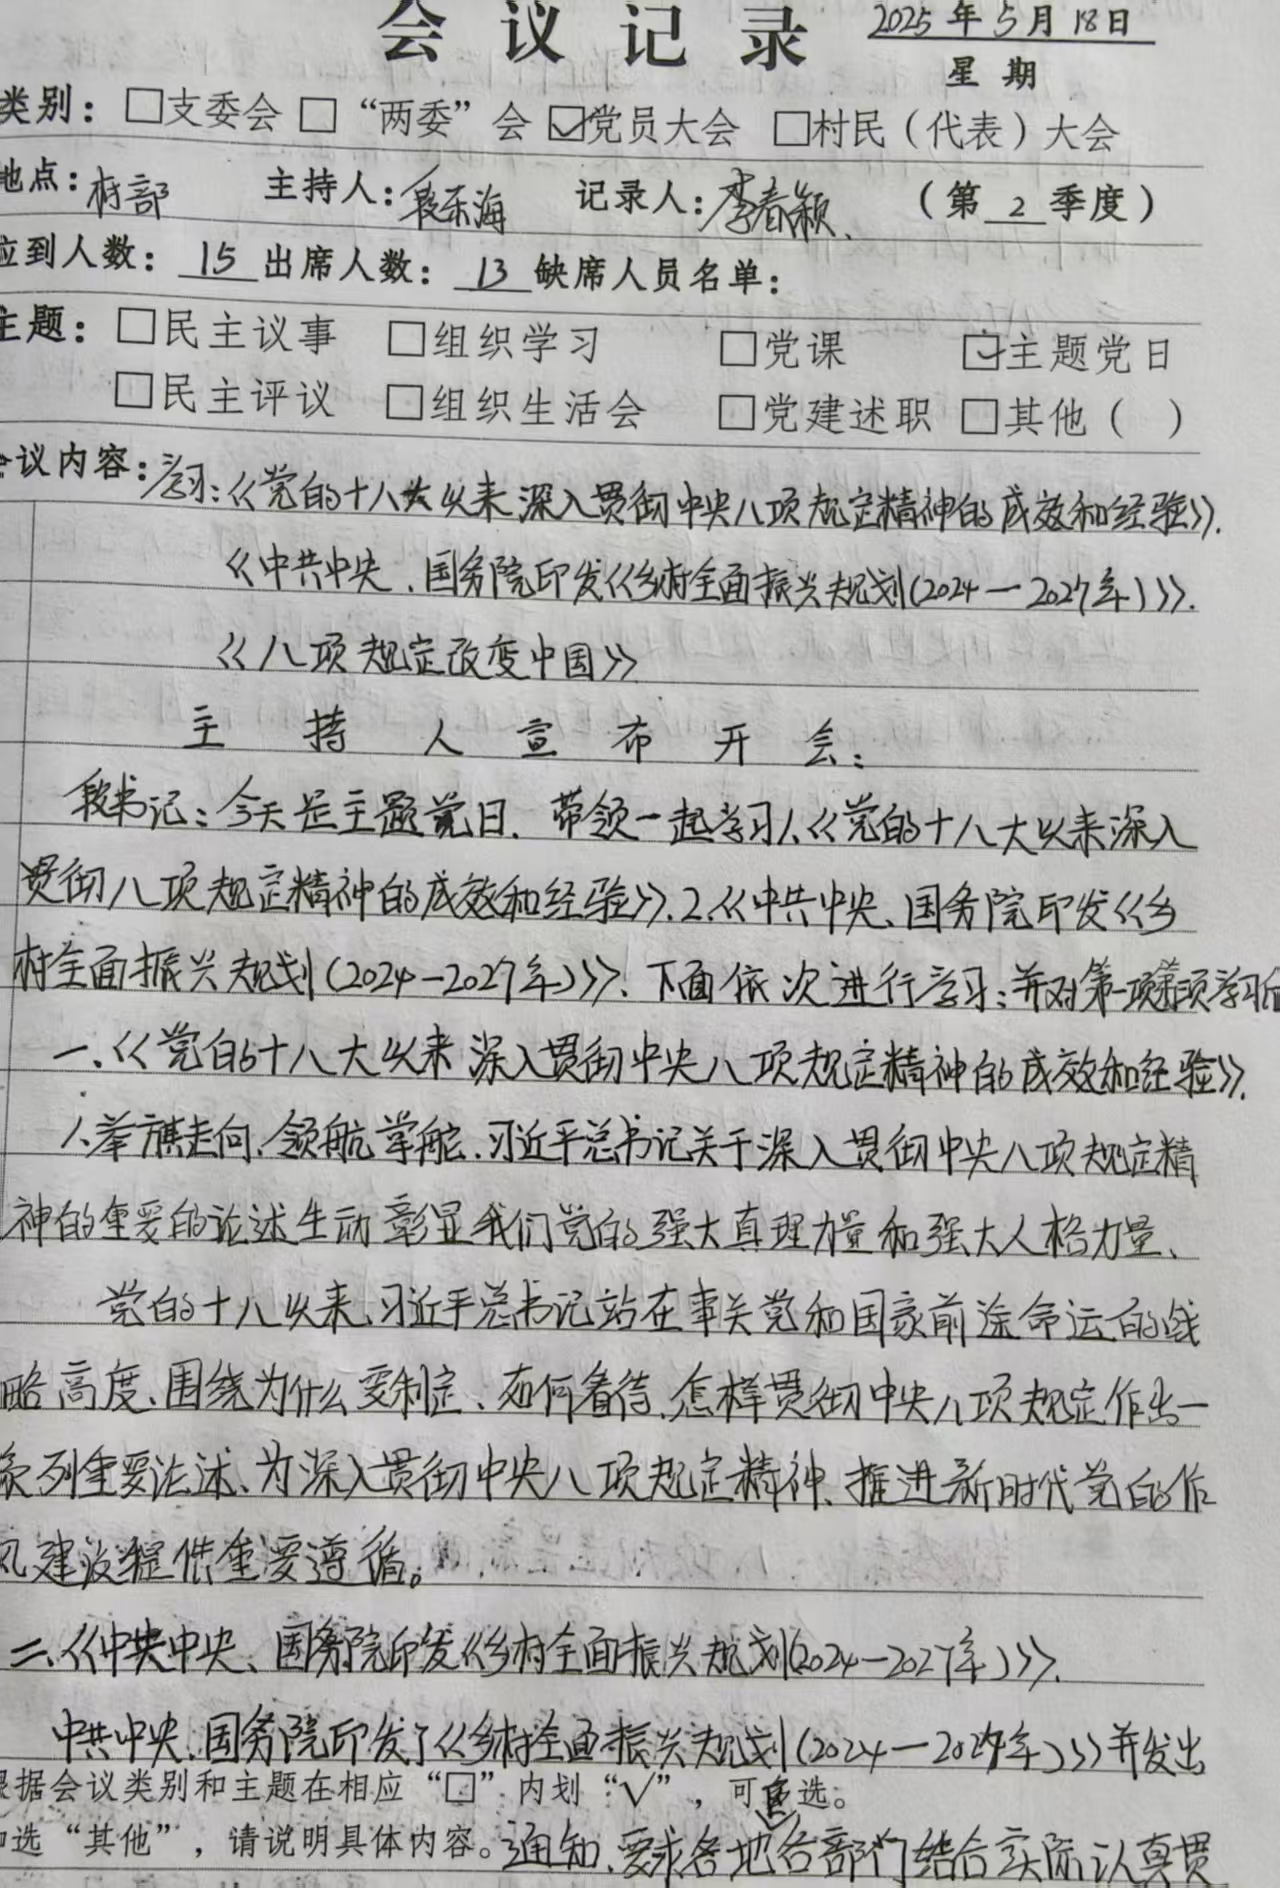 会议记录 2025年5月18日
星期
类别：□支委会 □“两委”会 ☑党员大会 □村民（代表）大会
地点：村部 主持人：段东海 记录人：李春颖、（第2季度）
应到人数：15 出席人数：13 缺席人员名单：
主题：□民主议事 □组织学习 □党课 ☑主题党日
□民主评议 □组织生活会 □党建述职 □其他（ ）
会议内容：学习：《党的十八大以来深入贯彻中央八项规定精神的成效和经验》.
《中共中央、国务院印发《乡村全面振兴规划(2024—2027年)》》.
《八项规定改变中国》
主持人宣布开会：
段书记：今天是主题党日、带领一起学习1、《党的十八大以来深入
贯彻八项规定精神的成效和经验》.2.《中共中央、国务院印发《乡
村全面振兴规划(2024—2027年)》》、下面依次进行学习：并对第一项学习后
一、《党的十八大以来深入贯彻中央八项规定精神的成效和经验》.
1、举旗走向、领航掌舵、习近平总书记关于深入贯彻中央八项规定精
神的重要的论述生动彰显我们党的强大真理力量和强大人格力量、
党的十八以来、习近平总书记站在事关党和国家前途命运的战
略高度、围绕为什么要制定、如何看待、怎样贯彻中央八项规定作出一
系列重要论述、为深入贯彻中央八项规定精神、推进新时代党的作
风建设提供重要遵循。
二、《中共中央、国务院印发《乡村全面振兴规划(2024—2027年)》》.
中共中央、国务院印发了《乡村全面振兴规划(2024—2027年)》》并发出
根据会议类别和主题在相应“□”内划“√”，可多选。
如选“其他”，请说明具体内容。通知、要求各地各部门结合实际认真贯